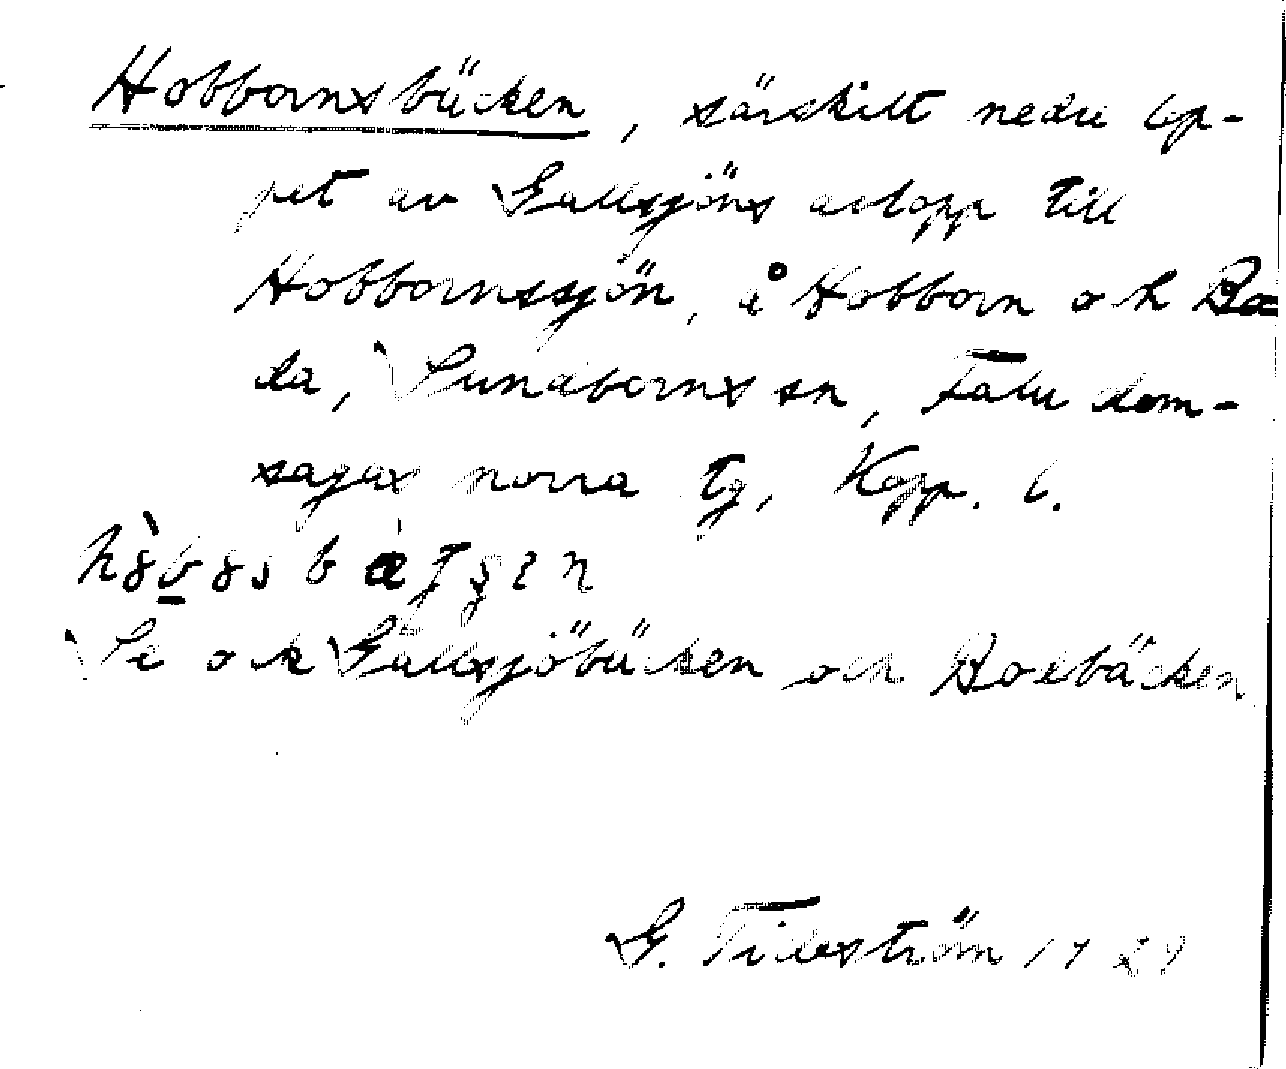 Hobbornsbäcken, särskilt nedre lop-
pet av Gallsjöns avlopp till
Hobbornssjön, å Hobborn och Bo-
da, Sundborns sn, Falu dom-
sagas norra tg, Kopp. l.
Se ock Gallsjöbäcken och Boxbäcken
G. Tideström 1929